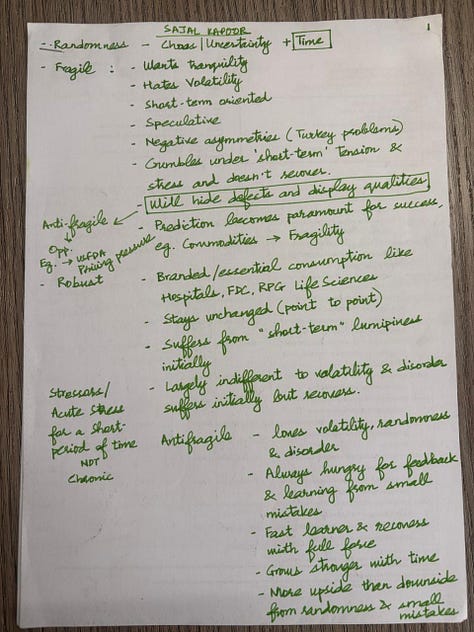 SAJAL KAPOOR
1
- Randomness - Choas/Uncertainty + Time
- Fragile : - Wants tranquility
- Hates Volatility
- Short-term oriented
- Speculative
- Negative asymmetries (Turkey problems)
- Crumbles under 'short-term' tension &
stress and doesn't recover.
- Will hide defects and display qualities
- Prediction becomes paramount for success,
eg. Commodities → Fragility
Anti-fragile
Opp.
Eg. → USFDA
Pricing pressure
- Robust
- Branded/essential consumption like
Hospitals, FDC, RPG Life Sciences
- Stays unchanged (point to point)
- Suffers from "short-term" lumpiness
initially
- Largely indifferent to volatility & disorder
suffers initially but recovers.
Stressors/
Acute stress
for a short-
period of time
NOT
Chronic
Antifragile - loves volatility, randomness
& disorder
- Always hungry for feedback
& learning from small
mistakes
- Fast learner & recovers
with full force
- Grows stronger with time
- More upside than downside
from randomness & small
mistakes